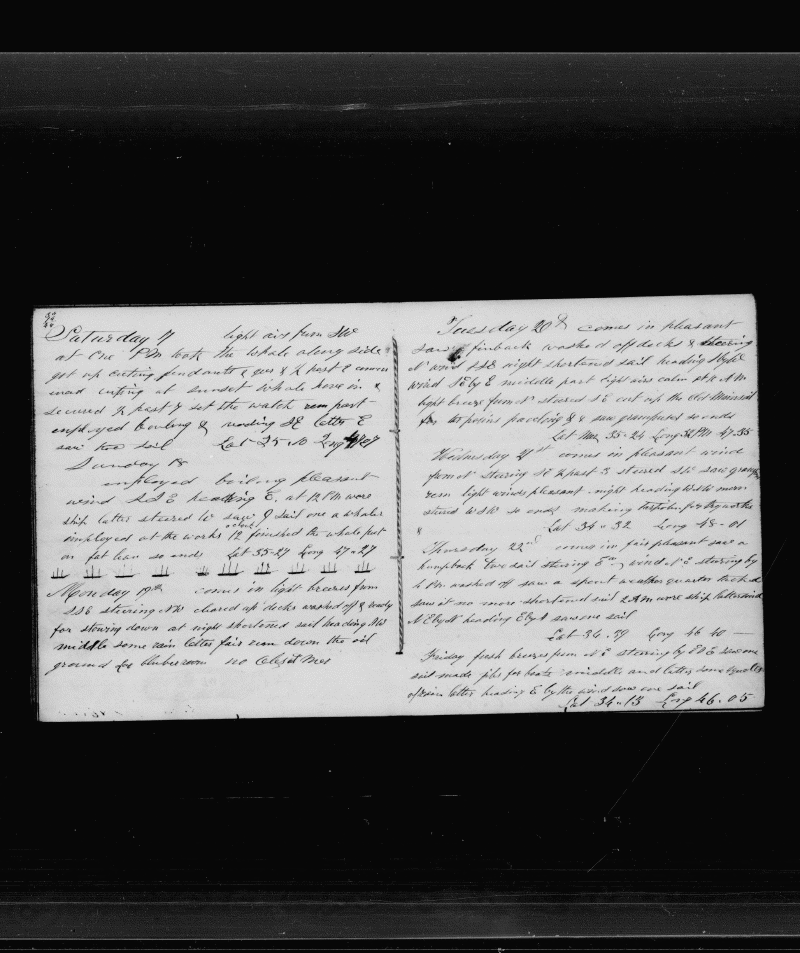 Saturday 17 light airs from SW
at one PM took the whale along side
got up cuting pendants & gear & ½ past 2 commen
cuting at sunset whale hove in &
secured ½ past 7 set the watch rem part
employed boiling & heading SE latter E
saw two sail Lat 35-10
Sunday 18
employed boiling pleasant
wind SSE heading E. at 12 PM wore
ship latter steared W saw 1 sail one a whaler
employed at the works 12 oclock finished the whole put
on fat lean so ends Lat 35-27 Long 47-27
Monday 19th comes in light breezes from
SSE steering NW cleared up decks washed off & ready
for stowing down at night shortened sail heading SW
middle some rain latter fair run down the oil
ground for blubber room no
Tuesday 20th comes in pleasant
saw finback washed off decks & steering
N wind SSE night shortened sail heading
wind SE by E middle part light airs calm at 10 AM
light breeze from N steared SE cut up the old Mainsail
for saw grampuses so ends
Lat 35-24 47-35
Wednesday 21st comes in pleasant wind
from N steering SE ½ past 3 steared SW saw
rem light winds pleasant night heading WSW morn
steared WSW so ends making for try works
& Lat 34-32 Long 48-01
Thursday 22nd comes in fair pleasant saw a
humpback two sail steering E wind N E steering by
4 PM washed off saw a spout weather quarter tacked
saw it no more shortened sail 2 AM wore ship latter wind
N E by N heading E by N saw one sail
Lat 34.39 Long 46 40
Friday fresh breezes from N E steering by ESE saw one
sail made jibs for boats middle and latter some squalls
of rain latter heading E by the wind saw one sail
Lat 34-13 Long 46.05